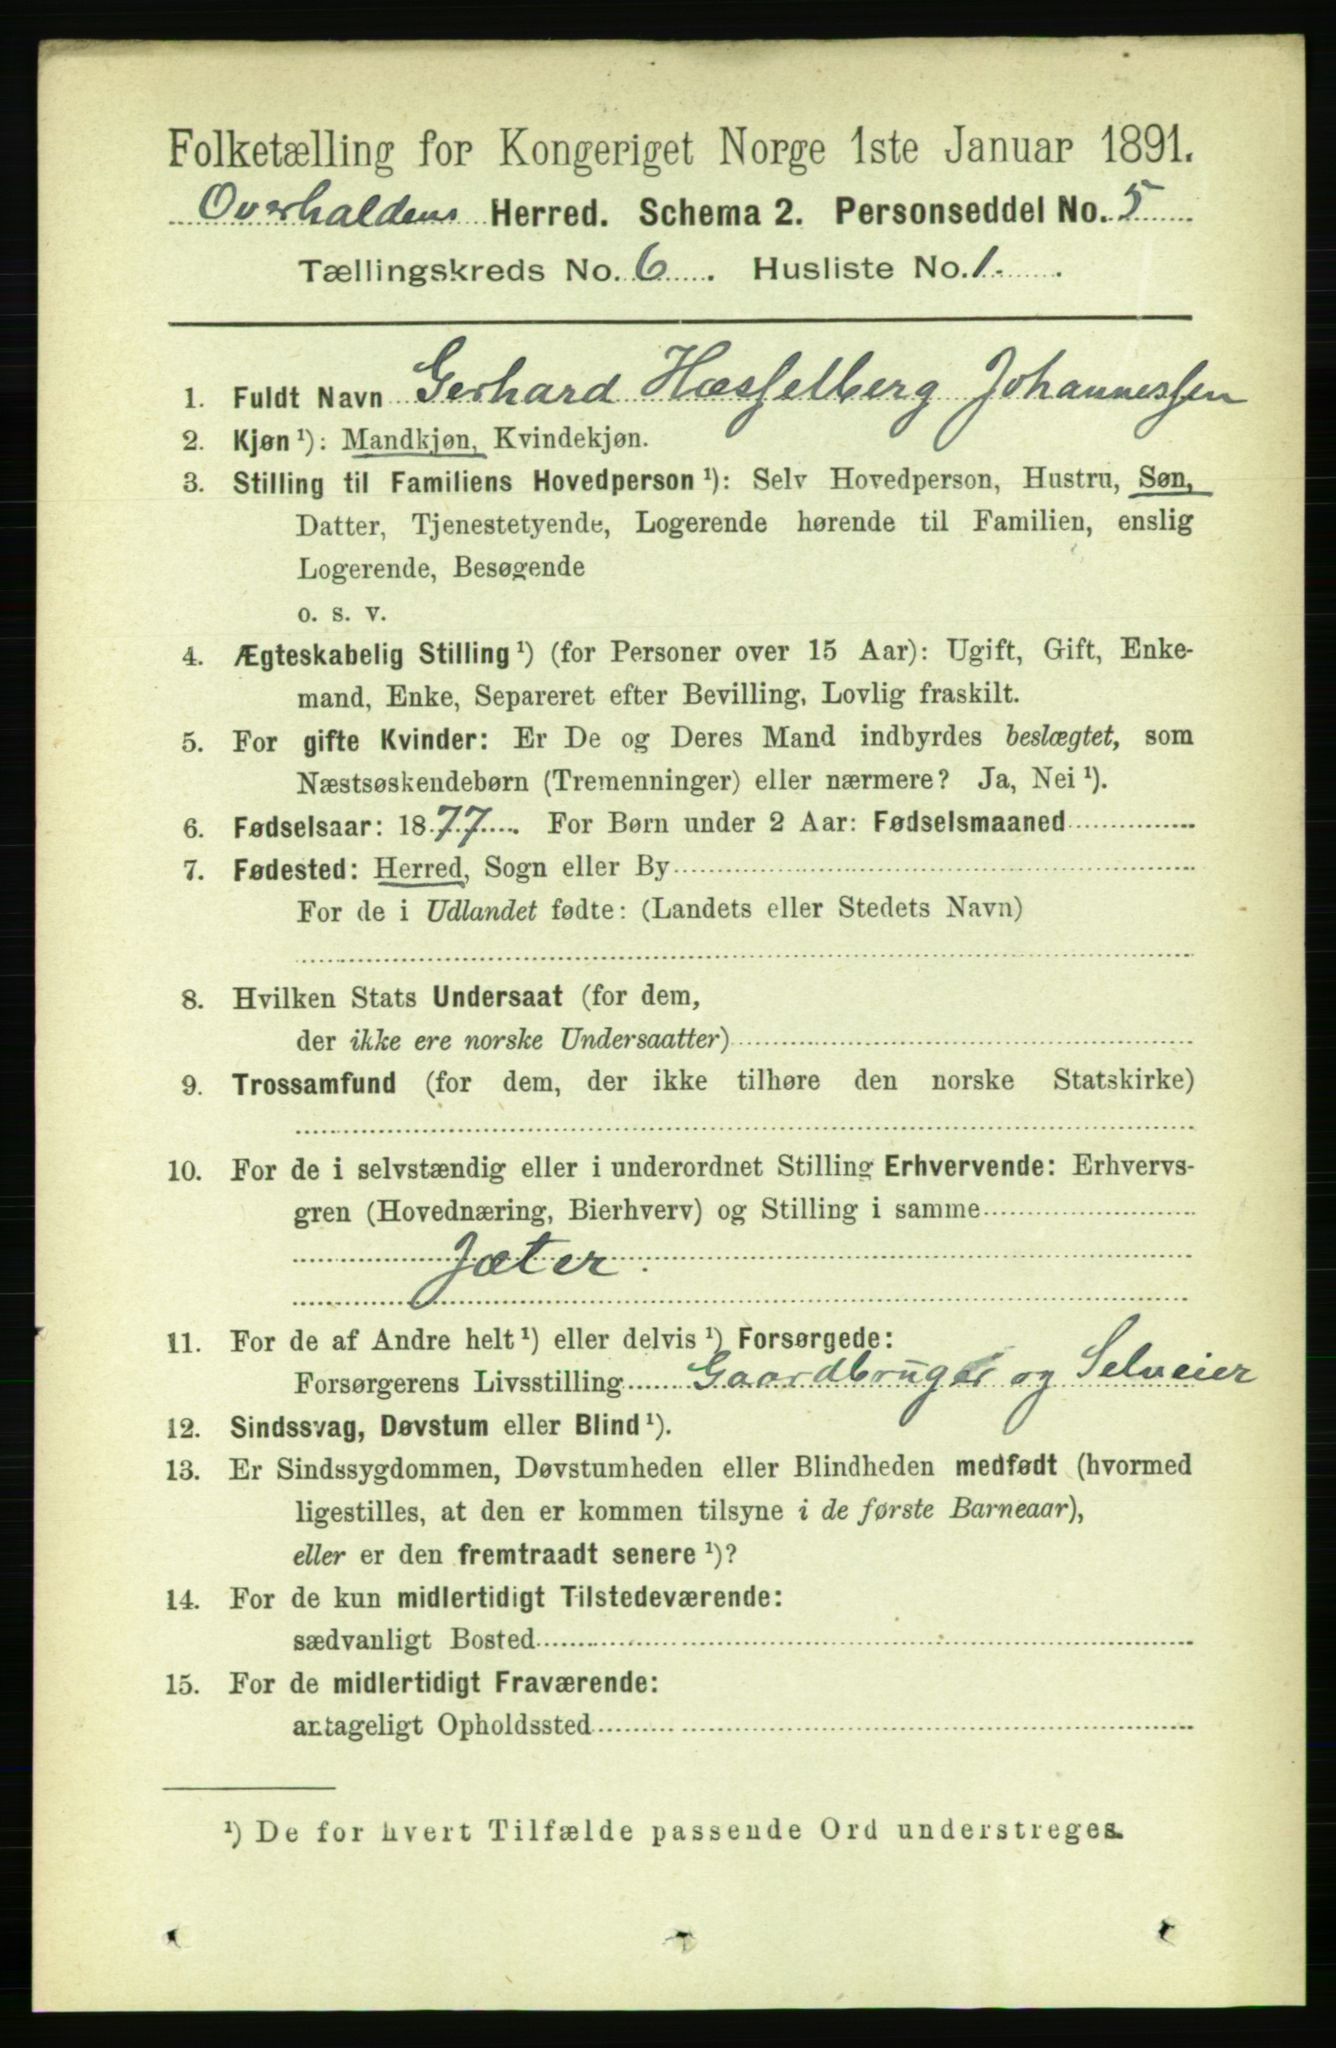 Folketælling for Kongeriget Norge 1ste Januar 1891.
Overhaldens Herred. Schema 2. Personseddel No. 5
Tællingskreds No. 6. Husliste No. 1.
1. Fuldt Navn Gerhard Hæsselberg Johannessen
2. Kjøn ¹): Mandkjøn, Kvindekjøn.
3. Stilling til Familiens Hovedperson ¹): Selv Hovedperson, Hustru, Søn,
Datter, Tjenestetyende, Logerende hørende til Familien, enslig
Logerende, Besøgende
o. s. v.
4. Ægteskabelig Stilling ¹) (for Personer over 15 Aar): Ugift, Gift, Enke-
mand, Enke, Separeret efter Bevilling, Lovlig fraskilt.
5. For gifte Kvinder: Er De og Deres Mand indbyrdes beslægtet, som
Næstsøskendebørn (Tremenninger) eller nærmere? Ja, Nei ¹).
6. Fødselsaar: 1877. For Børn under 2 Aar: Fødselsmaaned
7. Fødested: Herred, Sogn eller By
For de i Udlandet fødte: (Landets eller Stedets Navn)
8. Hvilken Stats Undersaat (for dem,
der ikke ere norske Undersaatter)
9. Trossamfund (for dem, der ikke tilhøre den norske Statskirke)
10. For de i selvstændig eller i underordnet Stilling Erhvervende: Erhvervs-
gren (Hovednæring, Bierhverv) og Stilling i samme
Jæter.
11. For de af Andre helt ¹) eller delvis ¹) Forsørgede:
Forsørgerens Livsstilling Gaardbruger og Selveier
12. Sindssvag, Døvstum eller Blind ¹).
13. Er Sindssygdommen, Døvstumheden eller Blindheden medfødt (hvormed
ligestilles, at den er kommen tilsyne i de første Barneaar),
eller er den fremtraadt senere ¹)?
14. For de kun midlertidigt Tilstedeværende:
sædvanligt Bosted
15. For de midlertidigt Fraværende:
antageligt Opholdssted
¹) De for hvert Tilfælde passende Ord understreges.